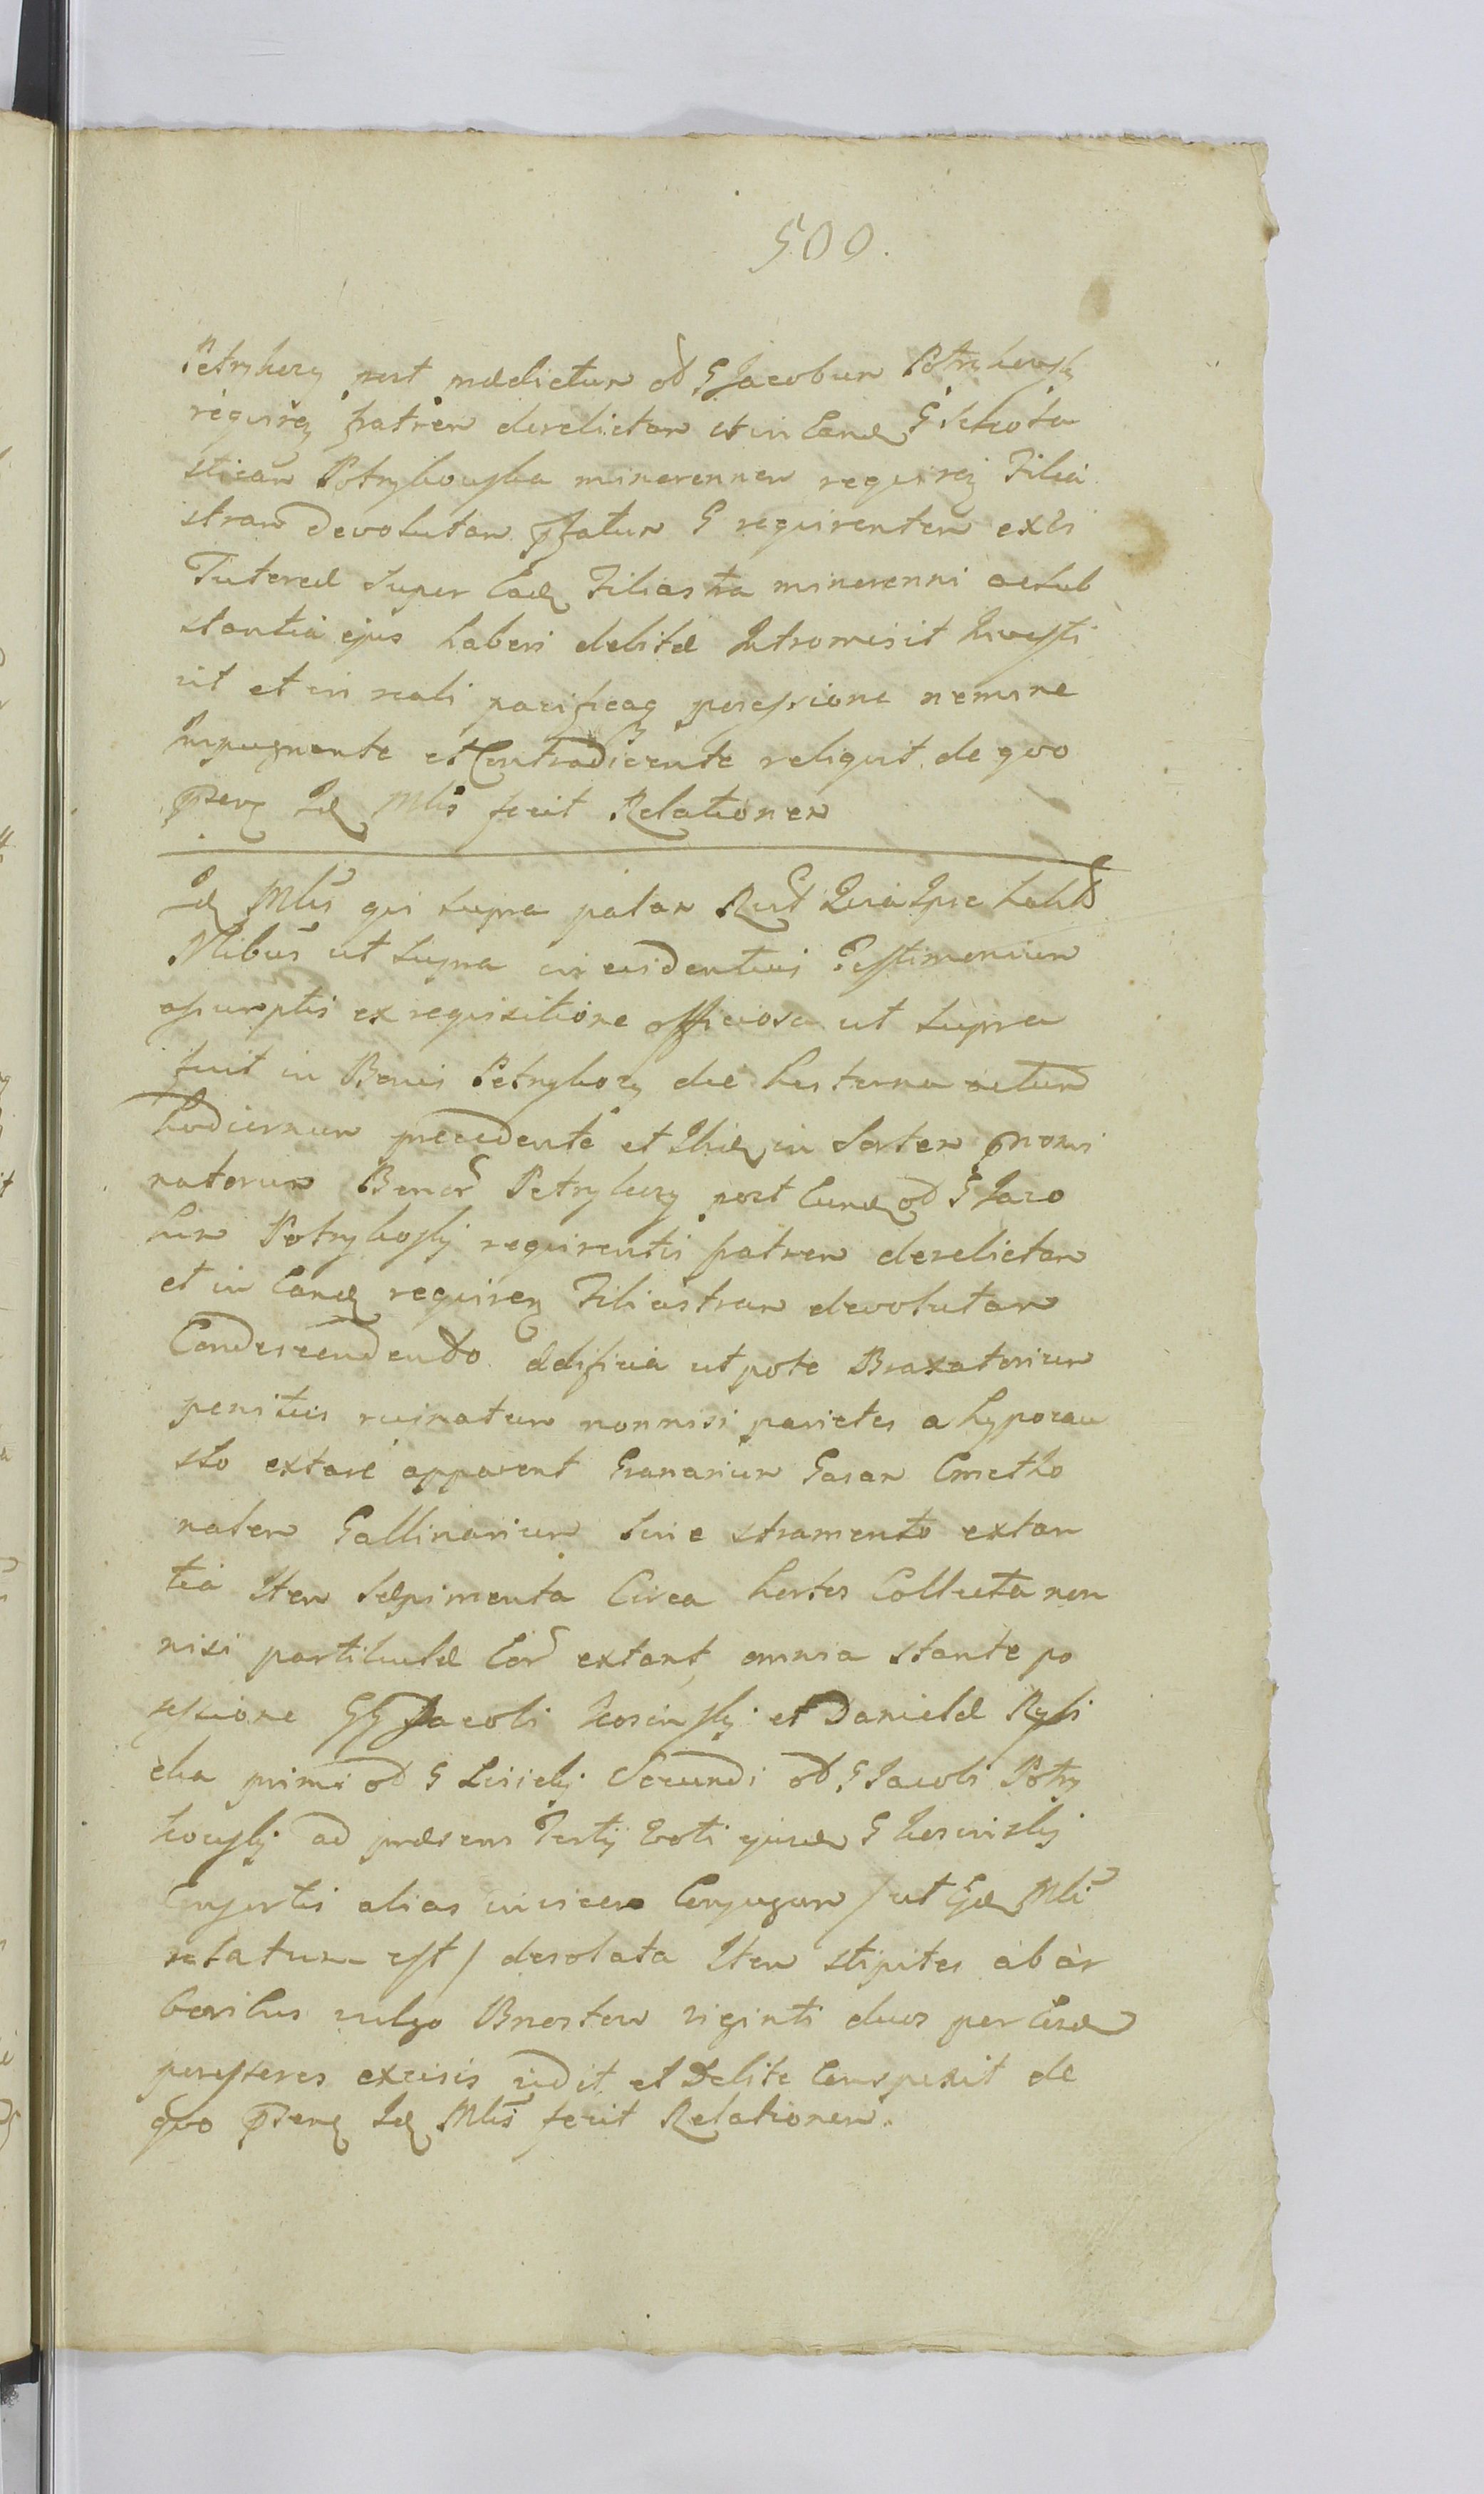 500.
Petrykozy post prædictum od G Jacobum Potrykowsky
requireñ fratrem derelictam et in Eand G Schola
sticam Potrykowska minorennem requireñ Filia
stram devolutam pfatum G requirentem ex vi
Tutelæ super Ead Filiastra minorenni ac sub
stantia ejus haberi debitæ Intromisit Investi
vit et in reali pacificaq possessione nemine
Impugnente et Contradicente reliquit de quo
pnsenq Id Mlis fecit Relationem
Id Mlis qui supra palam Rect Quia Ipse habitis
Nlibus ut supra in evidentius Testimonium
assumptis ex requisitione officiosa ut supra
fuit in Bonis Petrykozy die hesterna actum
hodiernum precedente et Ibid in Sortem pnomi
natorum Bonor Petrykozy post Eund od G Jaco
bum Potrykosky requirentis fratrem derelictam
et in Eand requireñ Filiastram devolutam
Condescendendo Ædificia utpote Braxatorium
penitus ruinatum nonnisi parietes a hypocau
sto extare apparent Granarium Gazam Cmetho
nalem Gallinarium sine stramento extan
tia Item Sæpimenta Circa hortos Collecta non
nisi particulæ Eor extant, omnia stante po
ssessione GG Jacobi et Danielæ
primi od G Secundi od G Jacobi Potry
kowsky ad præsens Tertij Voti ejusd G
Consortis alias invicem Conjugum / ut Eid Mli
relatum est / desolata Item stipites ab ar
boribus vulgo Brzostow viginti duos per Eosd
possessores excisis vidit et Debite Conspexit de
quo pnsenq Id Mlis fecit Relationem.